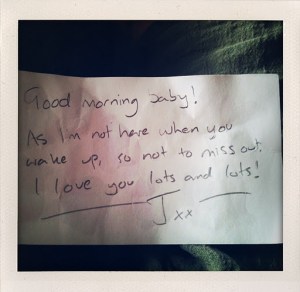 Good morning baby!
As I'm not here when you
wake up, so not to miss out.
I love you lots and lots!
J xx